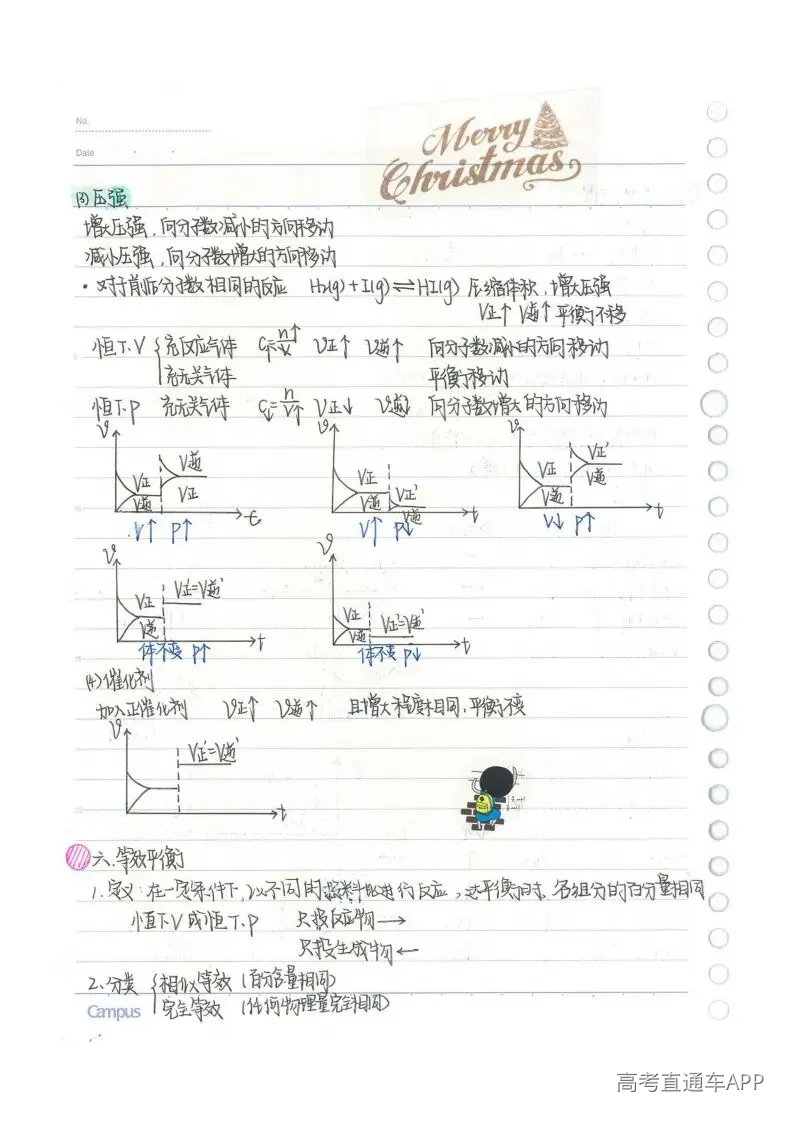 No.
Date
Merry
Christmas
(3) 压强
增大压强,向分子数减小的方向移动
减小压强,向分子数增大的方向移动
· 对于前后分子数相同的反应 H₂(g)+I(g)⇌HI(g) 压缩体积,增大压强
V正↑ V逆↑ 平衡不移
恒T.V { 充反应气体 C↑=n↑/V V正↑ V逆↑ 向分子数减小的方向移动
充无关气体 平衡移动
恒T.P 充无关气体 C↓=n/V↑ V正↓ V逆↓ 向分子数增大的方向移动
V V正 V逆 V逆 V正 t
V↑ P↑
V V正 V逆 V正' V逆' t
V↑ P↓
V V正 V逆 V正' V逆' t
V↓ P↑
V V正 V逆 V正'=V逆' t
体不变 P↑
V V正 V逆 V正'=V逆' t
体不变 P↓
(4) 催化剂
加入正催化剂 V正↑ V逆↑ 且增大程度相同,平衡不变
V V正'=V逆' t
六.等效平衡
1.定义:在一定条件下,以不同的投料比进行反应,达平衡时,各组分的百分量相同
恒T.V或恒T.P 只投反应物→
只投生成物←
2.分类 { 相似等效(百分含量相同)
完全等效(任何物理量完全相同)
Campus
高考直通车APP